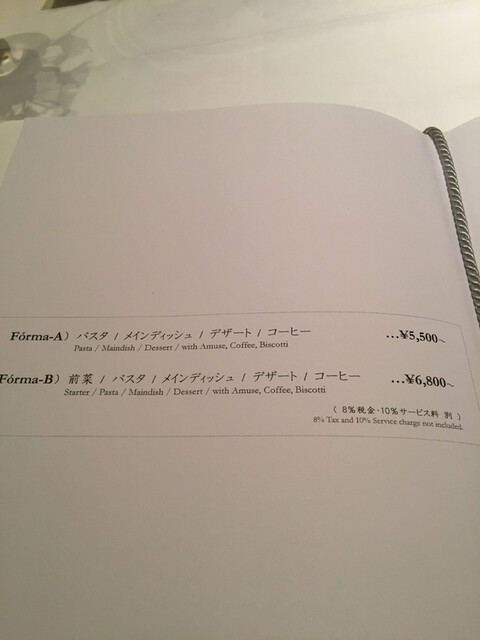 Fórma-A) パスタ / メインディッシュ / デザート / コーヒー ...¥5,500~
Pasta / Maindish / Dessert / with Amuse, Coffee, Biscotti
Fórma-B) 前菜 / パスタ / メインディッシュ / デザート / コーヒー ...¥6,800~
Starter / Pasta / Maindish / Dessert / with Amuse, Coffee, Biscotti
( 8%税金・10%サービス料 別 )
8% Tax and 10% Service charge not included.